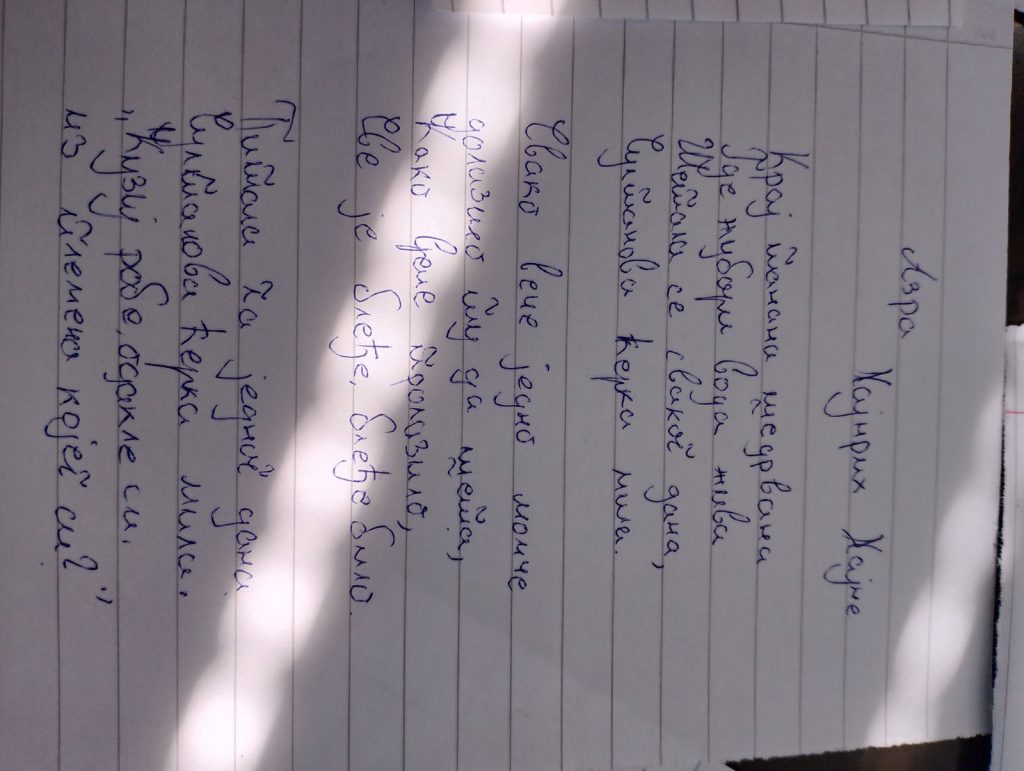 Азра
Хајнрих Хајне
Крај танана шедрвана
Где жубори вода жива
Шетала се сваког дана,
Султанова ћерка мила.
Свако вече једно момче
долазило ту да шета,
Како време пролазило,
Све је блеђе, блеђе било.
Питала га једног дана
Султанова ћерка мила.
„Кузуј робе, одакле си,
из племена којег си?"